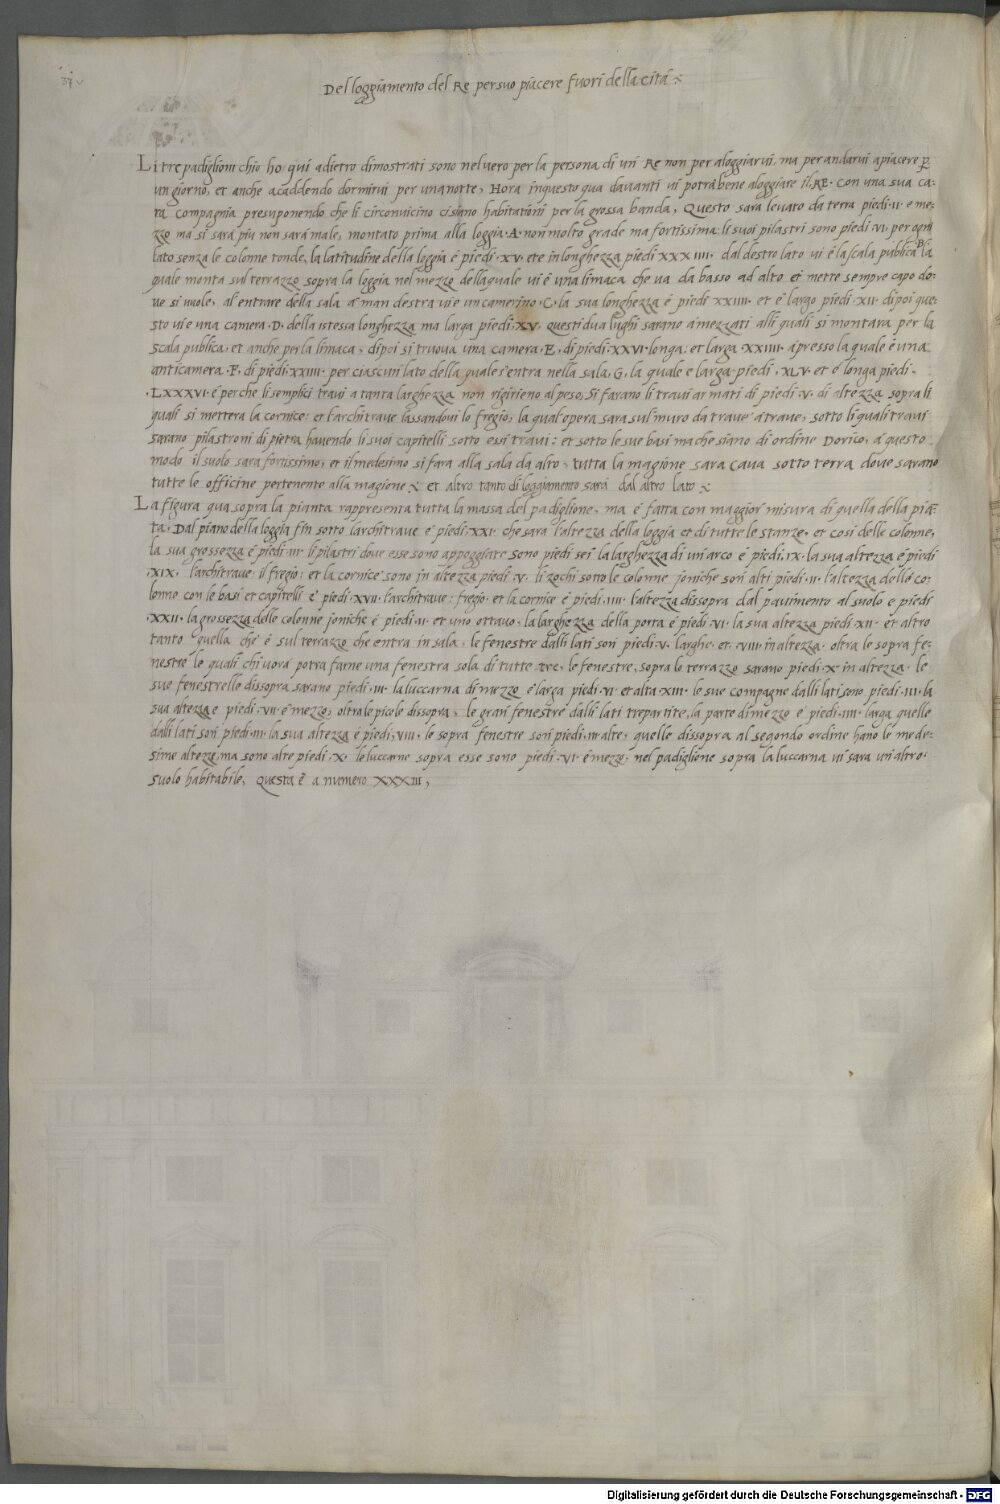 37v
Del loggiamento del Re per suo piacere fuori della cità
Li tre padiglioni chio ho qui adietro dimostrati sono nel vero per la persona di un Re non per aloggiarvi, ma per andarvi a piacere p.
un giorno, et anche acaddendo dormirvi per una notte, Hora in questo qua davanti vi potrà bene aloggiare il RE. con una sua ca-
ra compagnia presuponendo che li circonvicino ci siano habitationi per la grossa banda, Questo sara levato da terra piedi .II. e me-
zzo ma si sara piu non sara male, montato prima alla loggia .A. non molto grade ma fortissima: li suoi pilastri sono piedi .VI. per ogni
lato senza le colonne tonde, la latitudine della loggia è piedi .XV. et è in longhezza piedi XXXIIII. dal destro lato vi è la scala publica .B. la
quale monta sul terrazzo sopra la loggia nel mezzo della quale vi è una limaca che va da basso ad alto et mette sempre capo do-
ve si vuole, al entrare della sala a man destra vi e un camerino .C. la sua longhezza è piedi XXIIII. et è largo piedi .XII. dipoi que-
sto vi e una camera .D. della istessa longhezza ma larga piedi .XV. questi dua lughi sarano amezzati alli quali si montara per la
scala publica, et anche per la limaca, dipoi si truova una camera .E. di piedi .XXVI. longa: et larga .XXIIII. apresso la quale è una
anticamera .F. di piedi .XXIIII. per ciascun lato della quale s'entra nella sala .G. la quale e larga piedi .XLV. et è longa piedi.
.LXXXVI. é perche li semplici travi a tanta larghezza non rigirieno al peso, Si farano li travi armati di piedi .V. di altezza sopra li
quali si mettera la cornice: et l'architrave lassandovi lo fregio, la qual'opera sara sul muro da trave a trave, sotto li quali travi
sarano pilastroni di pietra havendo li suoi capitelli sotto essi travi: et sotto le sue basi ma che siano di ordine Dorico, a questo
modo il suolo sara fortissimo, et il medesimo si fara alla sala da alto, tutta la magione sara cava sotto terra dove sarano
tutte le officine pertenente alla magione et altro tanto di loggiamento sara dal altro lato
La figura qua sopra la pianta rappresenta tutta la massa del padiglione, ma è fatta con maggior misura di quella della pia-
ta, Dal piano della loggia fin sotto l'architrave e piedi .XXI. che sara l'altezza della loggia et di tutte le stanze. et cosi delle colonne,
la sua grossezza è piedi .III. li pilastri dove esse sono appoggiate sono piedi sei la larghezza di un'arco è piedi .IX. la sua altezza è piedi
.XIX. l'architrave: il fregio: et la cornice sono in altezza piedi .V. li zochi sotto le colonne joniche son alti piedi .II. l'altezza delle co-
lonne con le basi et capitelli è piedi .XVII. l'architrave: fregio. et la cornice è piedi .IIII. l'altezza dissopra dal pavimento al suolo e piedi
.XXII. la grossezza delle colonne joniche è piedi .II. et uno ottavo, la larghezza della porta è piedi .VI. la sua altezza piedi .XII. et altro
tanto quella che è sul terrazzo che entra in sala, le fenestre dalli lati son piedi .V. larghe. et .VIII. in altezza. oltra le sopra fe-
nestre le quali chi vorà potra farne una fenestra sola di tutte tre, le fenestre, sopra lo terrazzo sarano piedi .X. in altezza. le
sue fenestrelle dissopra sarano piedi .III. la luccarna di mezzo è larga piedi .VI. et alta XIII. le sue compagne dalli lati sono piedi .III. la
sua altezza è piedi .VII. e mezzo, oltra le picole dissopra, le gran fenestre dalli lati trepartite, la parte di mezzo è piedi .IIII. larga quelle
dalli lati son piedi .II. la sua altezza è piedi .VIII. le sopra fenestre son piedi .III. alte, quelle dissopra al segondo ordine hano le mede-
sime altezze, ma sono alte piedi .X. le luccarne sopra esse sono piedi .VI. e mezzo, nel padiglione sopra la luccarna vi sara un'altro.
suolo habitabile, Questa è a numero XXXIII,
Digitalisierung gefördert durch die Deutsche Forschungsgemeinschaft - DFG